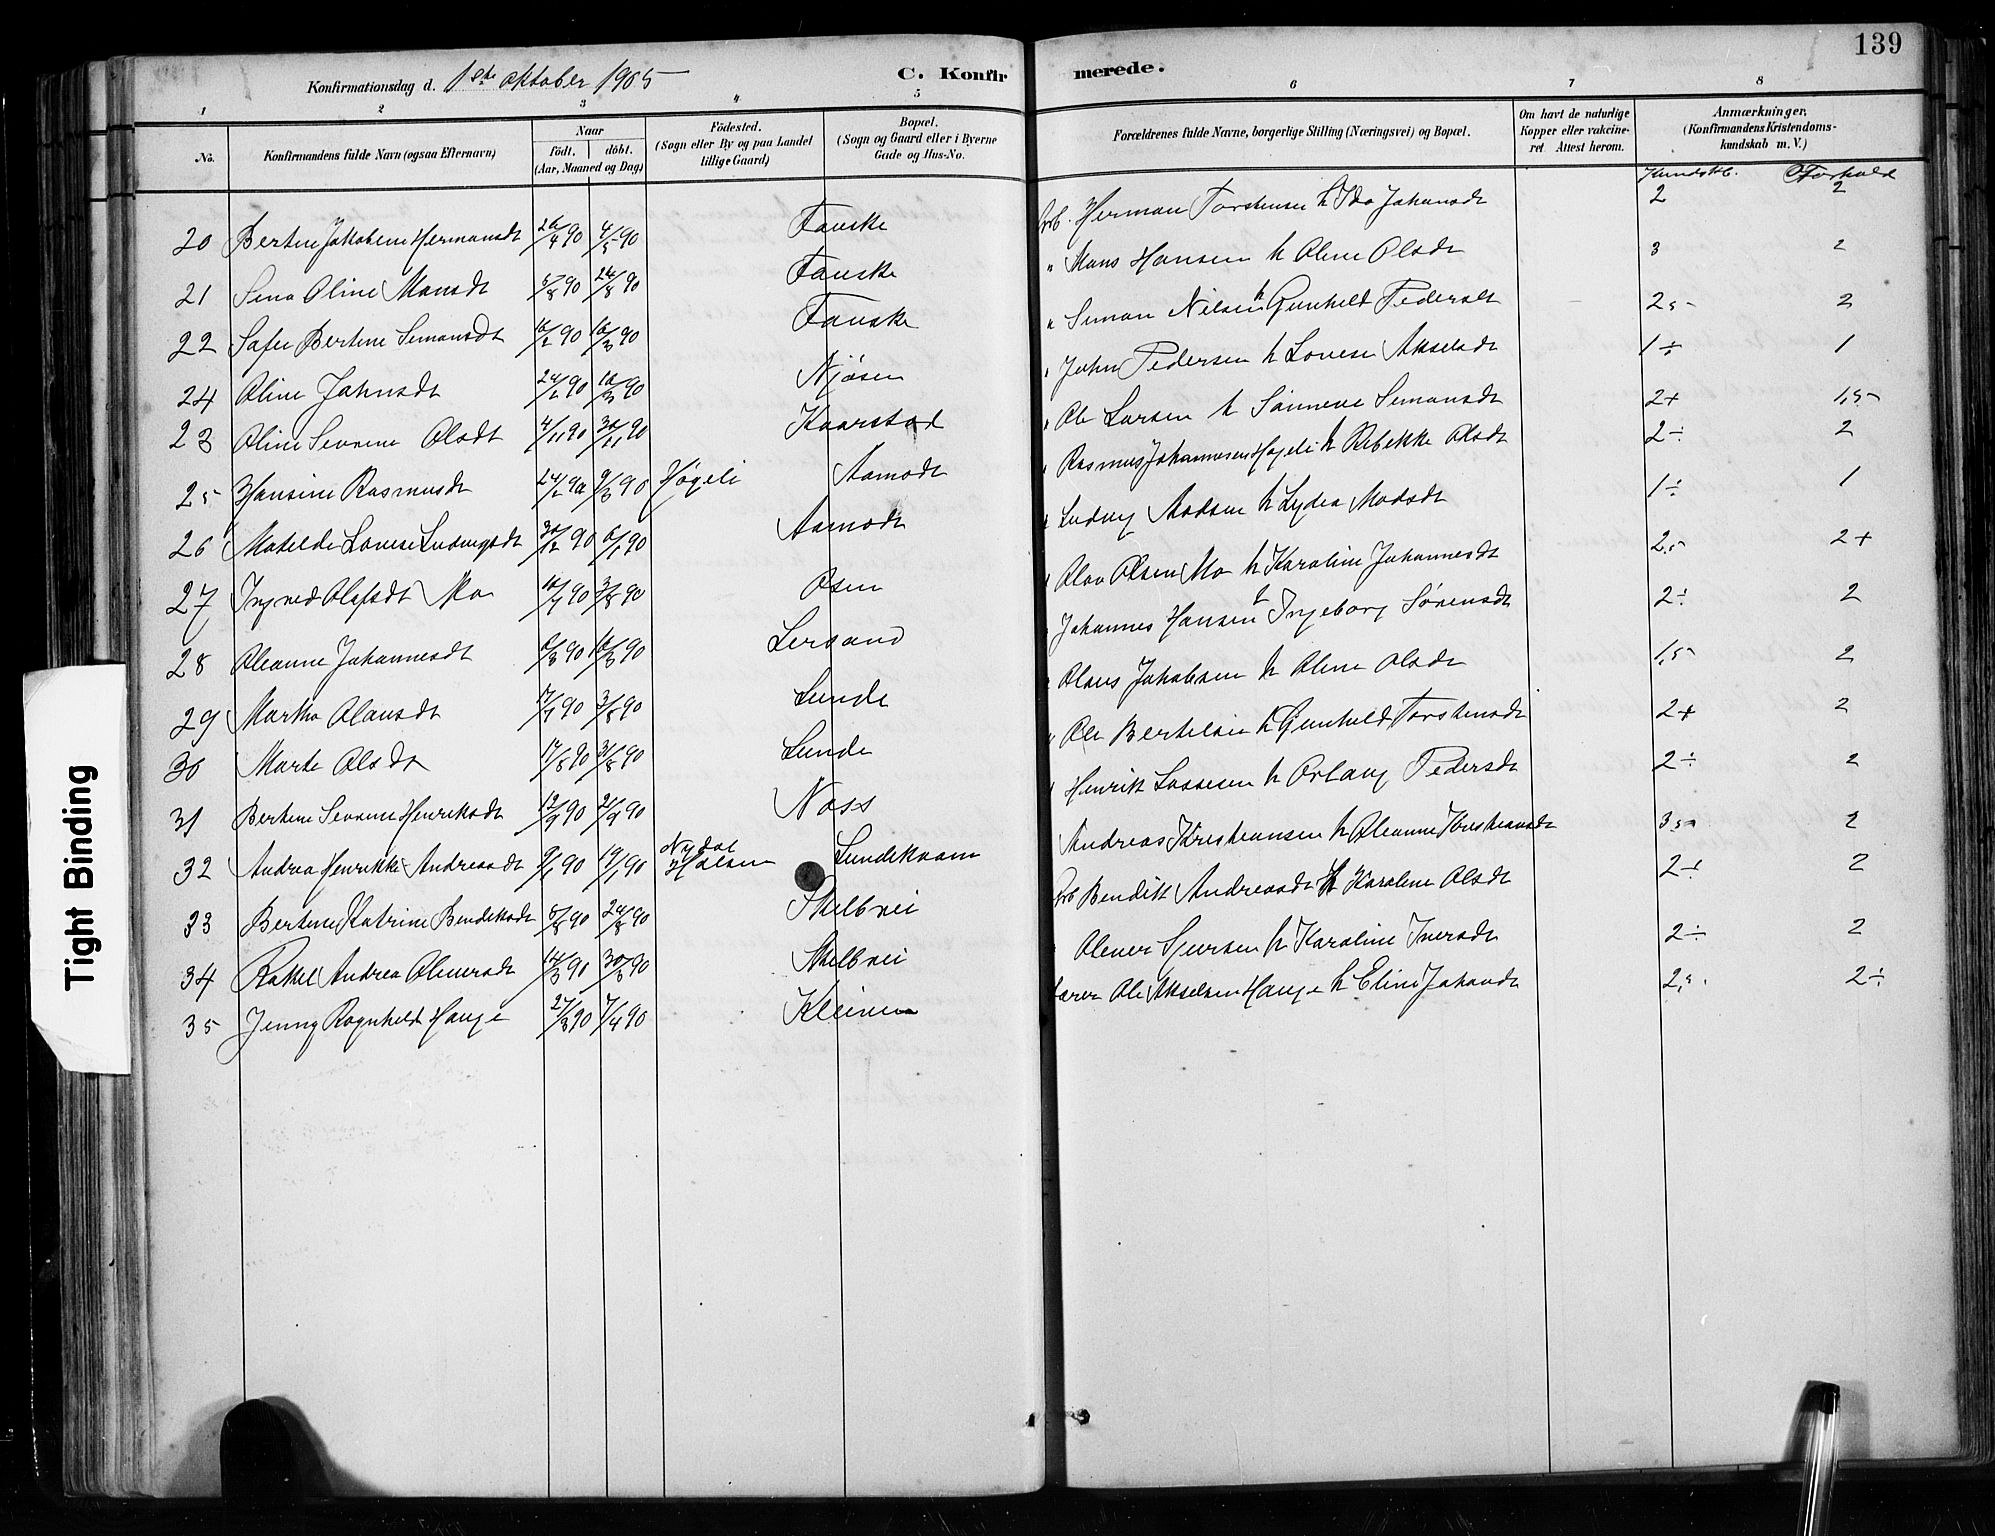 139
Konfirmationsdag d. 1ste oktober 1905
C. Konfirmerede.
1 2 3 4 5 6 7 8
No.
Konfirmandens fulde Navn (ogsaa Efternavn)
Naar
födt. döbt.
(Aar, Maaned og Dag)
Födested.
(Sogn eller By og paa Landet
tillige Gaard)
Bopæl.
(Sogn og Gaard eller i Byerne
Gade og Hus-No.
Forældrenes fulde Navne, borgerlige Stilling (Næringsvei) og Bopæl.
Om havt de naturlige
Kopper eller vakcine-
ret Attest herom.
Anmærkninger,
(Konfirmandens Kristendoms-
kundskab m. V.)
Kundsk. Forhold
20 Bertine Jakobine Hermansdt 26/4 90 4/5 90 Fauske Arb. Herman Torstensen h Ida Johansdt 2 2
21 Sena Oline Mansdt 5/8 90 24/8 90 Fauske " Mons Hansen h Oline Olsdt 3 2
22 Safie Bertine Simonsdt 16/2 90 16/3 90 Fauske " Simon Nilsen h Gunhild Pedersdt 2,5 2
24 Oline Johnsdt 24/2 90 10/3 90 Njøsen " John Pedersen h Lovise Akselsdt 1÷ 1
23 Oline Severine Olsdt 4/11 90 30/11 90 Kaarstad " Ole Larsen h Sønneve Simonsdt 2+ 1,5
25 Hansine Rasmusdt 24/2 90 9/3 90 Høgeli Aamodt " Rasmus Johannesen Høgeli h Rebekke Olsdt 2÷ 2
26 Matilde Lovise Ludvigsdt 30/12 90 6/1 90 Aamodt " Ludvig Madsen h Lydia Madsdt 1÷ 1
27 Ingved Olafsdt Mo 10/7 90 3/8 90 Osen " Olav Olsen Mo h Karoline Johannesdt 2,5 2+
28 Oleanne Johannesdt 6/3 90 16/3 90 Lersand Johannes Hansen h Ingeborg Sørensdt 2÷ 2
29 Martha Olausdt 17/7 90 3/8 90 Lunde " Olaus Jakobsen h Oline Olsdt 1,5 2
30 Marte Olsdt 17/8 90 31/8 90 Lunde " Ole Bertelsen h Gunhild Torstensdt 2+ 2
31 Bertine Severine Henriksdt 12/9 90 21/9 90 Nass " Henrik Lassesen h Orlaug Pedersdt 2÷ 2
32 Andrea Henrikke Andreasdt 9/1 90 19/1 90 Nydal Holsen Sundekvam Andreas Kristiansen h Oleanne Kristiansdt 3,5 2
33 Bertine Katrine Bendiksdt 5/8 90 24/8 90 Skelbrei Arb Bendikt Andreasdt h Karoline Olsdt 2÷ 2
34 Rakel Andrea Olinersdt 14/3 90 30/3 90 Skelbrei Oliner Sjursen h Karoline Iversdt 2÷ 2
35 Jenny Ragnhild Hauge 27/3 90 7/4 90 Kleiven Lærer Ole Akselsen Hauge h Eline Johansdt 2,5 2÷
Tight Binding